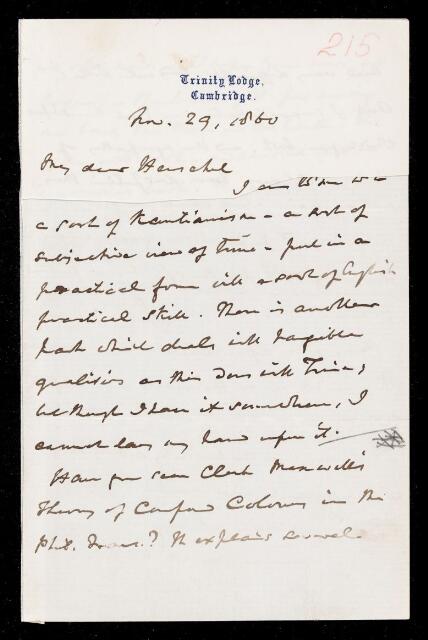 215
Trinity Lodge,
Cambridge.
Nov. 29, 1860
My dear Herschel
I am
a sort of Kantianism - a sort of
subjective view of time - put in a
practical form with a sort of English
practical skill. There is another
book which deals with tangible
qualities as this does with Time;
but though I have it somewhere, I
cannot lay my hand upon it.
Have you seen Clerk Maxwell's
Theory of Compound Colours in the
Phil. Trans.? It explains so well